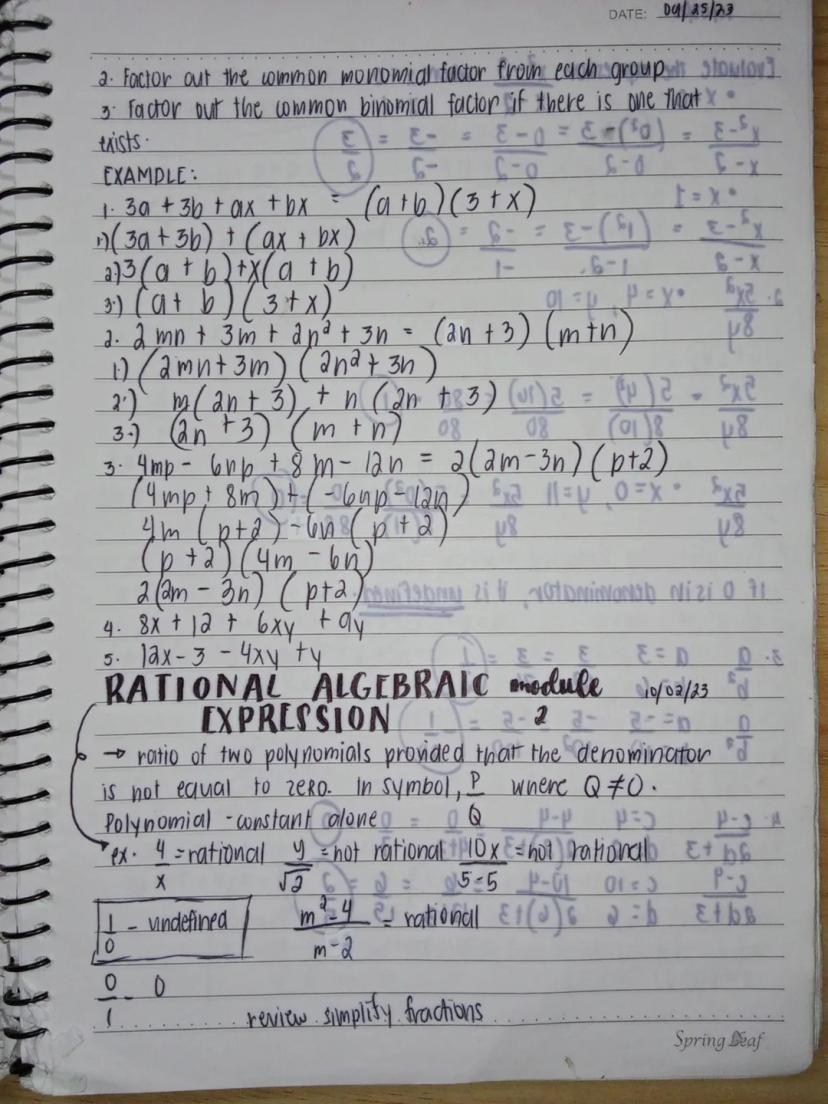 DATE: 09/25/23
2. Factor out the common monomial factor from each group
3. Factor out the common binomial factor if there is one that
exists.
EXAMPLE:
1. 3a + 3b + ax + bx = (a+b)(3+x)
1.)(3a+3b) + (ax + bx)
2.)3(a + b)+x(a + b)
3.) (a+ b) (3+x)
2. 2mn + 3m + 2n² + 3n = (2n +3) (m+n)
1.) (2mn+3m) (2n²+3n)
2.) m(2n + 3) + n (2n + 3)
3.) (2n +3) (m + n)
3. 4mp - 6np + 8m - 12n = 2(2m-3n)(p+2)
(4mp + 8m) + (-6np-12n)
4m (p+2) -6n (p + 2)
(p + 2) (4m - 6n)
2(2m - 3n) (p+2)
4. 8x + 12 + 6xy + 9y
5. 12x-3 -4xy +y
RATIONAL ALGEBRAIC module 10/02/23
EXPRESSION 2
→ ratio of two polynomials provided that the denominator
is not equal to zero. In symbol, P/Q where Q ≠0.
Polynomial -constant alone
ex. 4/x = rational y/√2 = not rational 10x/5-5 = not rational
1/0 - undefined m²-4/m-2 = rational
0/1 - 0
review simplify fractions
Spring Leaf